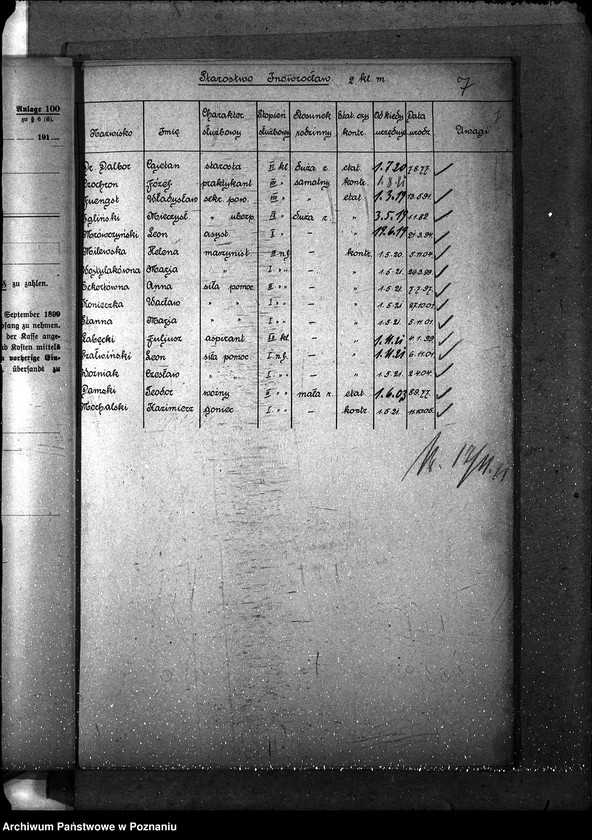 Anlage 100
zu § 6 (6).
191
zu zahlen.
September 1899
pfang zu nehmen.
der Kasse ange-
nd Kosten mittels
vorherige Ein-
übersandt zu
Starostwo Inowrocław. 2 kl. m. 7
Nazwisko Imię Charakter służbowy Stopień służbowy Stosunek rodzinny Etat. czy kontr. Od kiedy urzęduje Data urodz. Uwagi
Dr. Dalbor Cajetan starosta II kl. duża r. etat. 1.7.20 7.8.77.
Józef praktykant III " samotny kontr.
Fuengst Władysław sekr. pow. III " " etat 1.3.19 13.5.91.
Mieczysł. " ubezp. II " duża r. " 3.5.19 1.1.82.
Mrówczyński Leon asyst. I " — " 17.6.19 21.3.94.
Milewska Helena maszynist. II n.g. — kontr. 1.5.20. 5.11.04.
Wojtylakówna Marja " I " " — " 1.5.21. 26.3.99.
Eckertówna Anna siła pomoc. II " " — " 1.5.21. 7.7.97.
Konieczka Wacław " " I " " — " 1.5.21. 27.10.01.
Stanna Marja " " I " " — " 1.5.21. 5.11.01.
Łabęcki Juljusz aspirant III kl. — " 1.4.21 4.1.99.
Leon siła pomoc. I n.g. — " 1.4.21 6.11.01.
Woźniak Czesław " " I " " — " 1.5.21. 2.4.04.
Damski Teodor woźny II " " mała r. etat. 1.6.03
Mochalski Kazimierz goniec I " " — kontr. 1.5.21. 11.10.05.
Archiwum Państwowe w Poznaniu